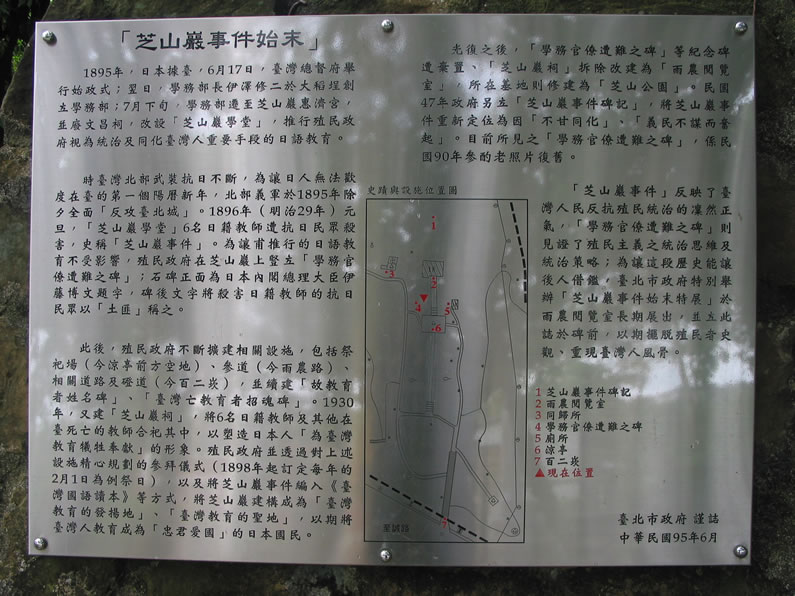 「芝山巖事件始末」
1895年，日本據臺，6月17日，臺灣總督府舉
行始政式；翌日，學務部長伊澤修二於大稻埕創
立學務部；7月下旬，學務部遷至芝山巖惠濟宮，
並廢文昌祠，改設「芝山巖學堂」，推行殖民政
府視為統治及同化臺灣人重要手段的日語教育。
時臺灣北部武裝抗日不斷，為讓日人無法歡
度在臺的第一個陽曆新年，北部義軍於1895年除
夕全面「反攻臺北城」。1896年（明治29年）元
旦，「芝山巖學堂」6名日籍教師遭抗日民眾殺
害，史稱「芝山巖事件」。為讓甫推行的日語教
育不受影響，殖民政府在芝山巖上豎立「學務官
僚遭難之碑」；石碑正面為日本內閣總理大臣伊
藤博文題字，碑後文字將殺害日籍教師的抗日
民眾以「土匪」稱之。
此後，殖民政府不斷擴建相關設施，包括祭
祀場（今涼亭前方空地）、參道（今雨農路）、
相關道路及磴道（今百二崁），並續建「故教育
者姓名碑」、「臺灣亡教育者招魂碑」。1930
年，又建「芝山巖祠」，將6名日籍教師及其他在
臺死亡的教師合祀其中，以塑造日本人「為臺灣
教育犧牲奉獻」的形象。殖民政府並透過對上述
設施精心規劃的參拜儀式（1898年起訂定每年的
2月1日為例祭日），以及將芝山巖事件編入《臺
灣國語讀本》等方式，將芝山巖建構成為「臺灣
教育的發揚地」、「臺灣教育的聖地」，以期將
臺灣人教育成為「忠君愛國」的日本國民。
光復之後，「學務官僚遭難之碑」等紀念碑
遭棄置、「芝山巖祠」拆除改建為「雨農閱覽
室」，所在基地則修建為「芝山公園」。民國
47年政府另立「芝山巖事件碑記」，將芝山巖事
件重新定位為因「不甘同化」、「義民不謀而奮
起」。目前所見之「學務官僚遭難之碑」，係民
國90年參酌老照片復舊。
「芝山巖事件」反映了臺
灣人民反抗殖民統治的凜然正
氣，「學務官僚遭難之碑」則
見證了殖民主義之統治思維及
統治策略；為讓這段歷史能讓
後人借鑑，臺北市政府特別舉
辦「芝山巖事件始末特展」於
雨農閱覽室長期展出，並立此
誌於碑前，以期擺脫殖民者史
觀、重現臺灣人風骨。
史蹟與設施位置圖
1
2
3
4
5
6
7
至誠路
1 芝山巖事件碑記
2 雨農閱覽室
3 同歸所
4 學務官僚遭難之碑
5 廁所
6 涼亭
7 百二崁
▲現在位置
臺北市政府 謹誌
中華民國95年6月